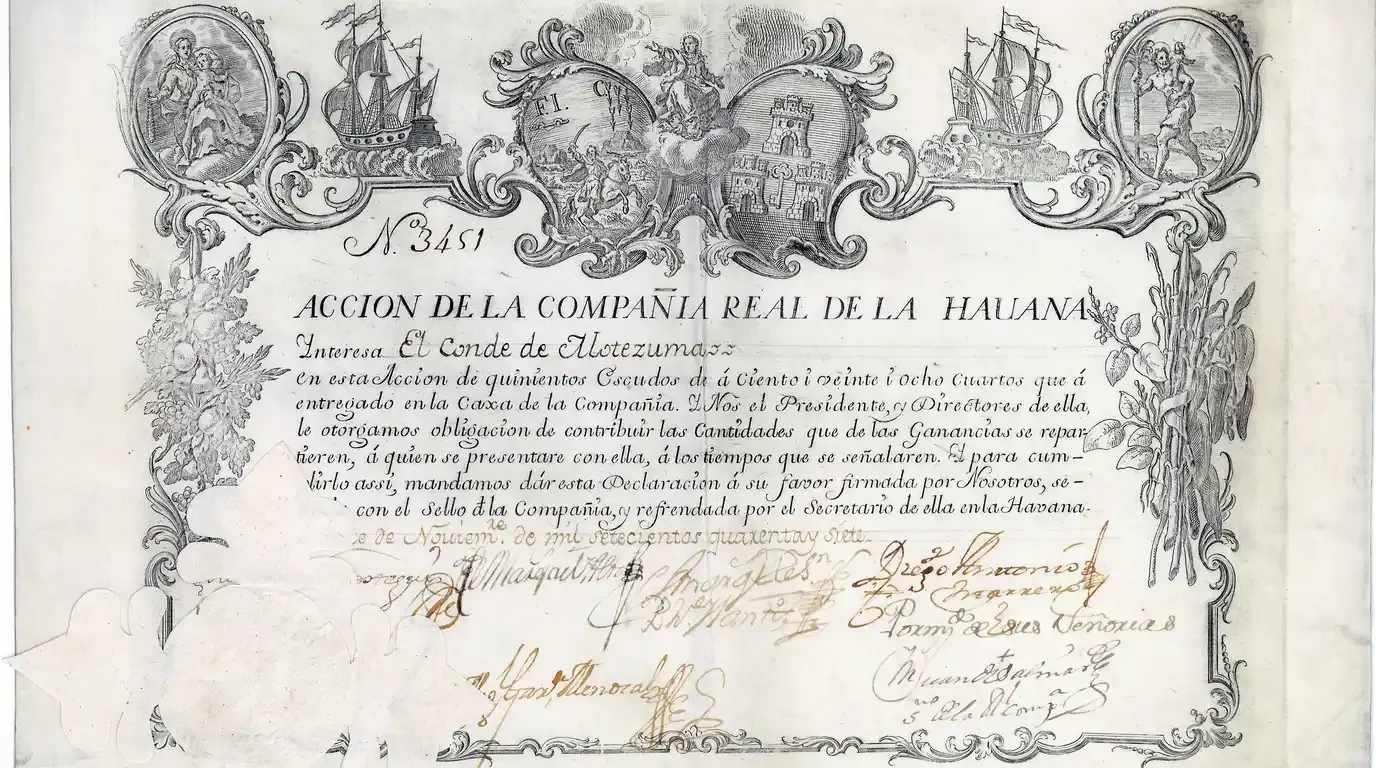 F.I. C.V.
N.º 3451
ACCION DE LA COMPAÑIA REAL DE LA HAUANA
Ynteresa El Conde de Motezuma
en esta Accion de quinientos Escudos de á Ciento i veinte i Ocho Cuartos que á
entregado en la Caxa de la Compañia. Y Nos el Presidente, y Directores de ella,
le otorgamos obligacion de contribuir las Cantidades que de las Ganancias se repar-
tieren, á quien se presentare con ella, á los tiempos que se señalaren. Y para cum-
lirlo assi, mandamos dár esta Declaracion á su favor firmada por Nosotros, se-
con el Sello dla Compañia, y refrendada por el Secretario de ella en la Havana
de Noviem.re de mil setecientos quarenta y siete.
Diego Antonio
Marrero
Por m.do de sus Señorias